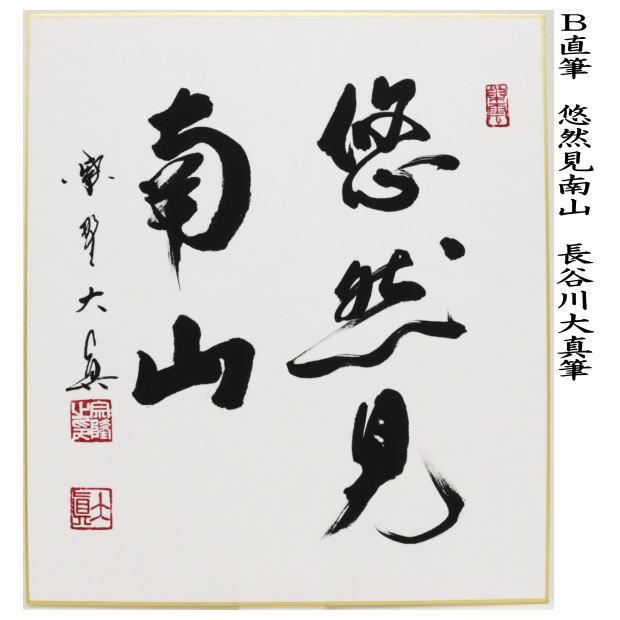 B直筆　悠然見南山　長谷川大真筆
悠然見
南山
大真
大真